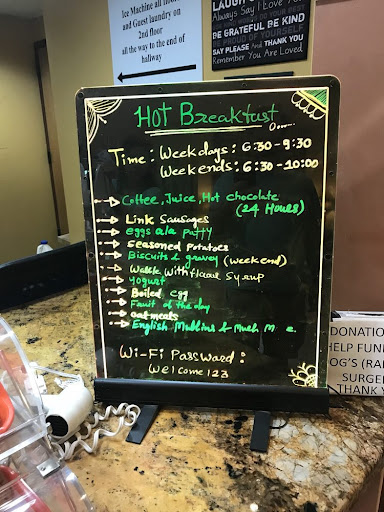 Ice Machine all
and Guest laundry on
2nd floor
all the way to the end of
hallway
LAUGH
Always Say I Love You
DO YOUR BEST
BE GRATEFUL BE KIND
BE PROUD OF YOURSELF
SAY PLEASE And THANK YOU
Remember You Are Loved
Hot Breakfast
Time: Weekdays: 6:30-9:30
Weekends: 6:30-10:00
Coffee, Juice, Hot chocolate
(24 Hours)
Link Sausages
eggs ala patty
Seasoned potatoes
Biscuits & gravey (weekend)
Waffle with flavor Syrup
Yogurt
Boiled egg
Fruit of the day
oatmeals
English Muffins & Much M e.
Wi-Fi Password:
Welcome123
DONATION
HELP FUN
OG'S (RA
SURGE
THANK